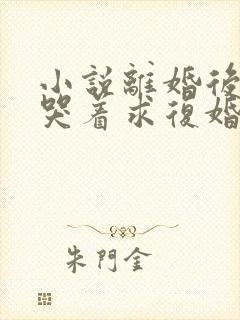 小說離婚後
哭着求復婚
朱門金